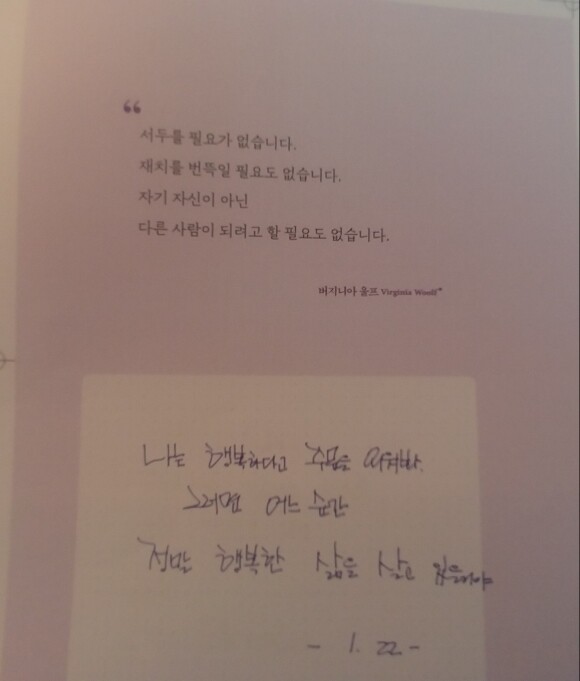 “
서두를 필요가 없습니다.
재치를 번뜩일 필요도 없습니다.
자기 자신이 아닌
다른 사람이 되려고 할 필요도 없습니다.
버지니아 울프 Virginia Woolf
나는 행복하다고 주문을
그러면 어느 순간
정말 행복한 삶을 살고 있을거야
- 1. 22 -